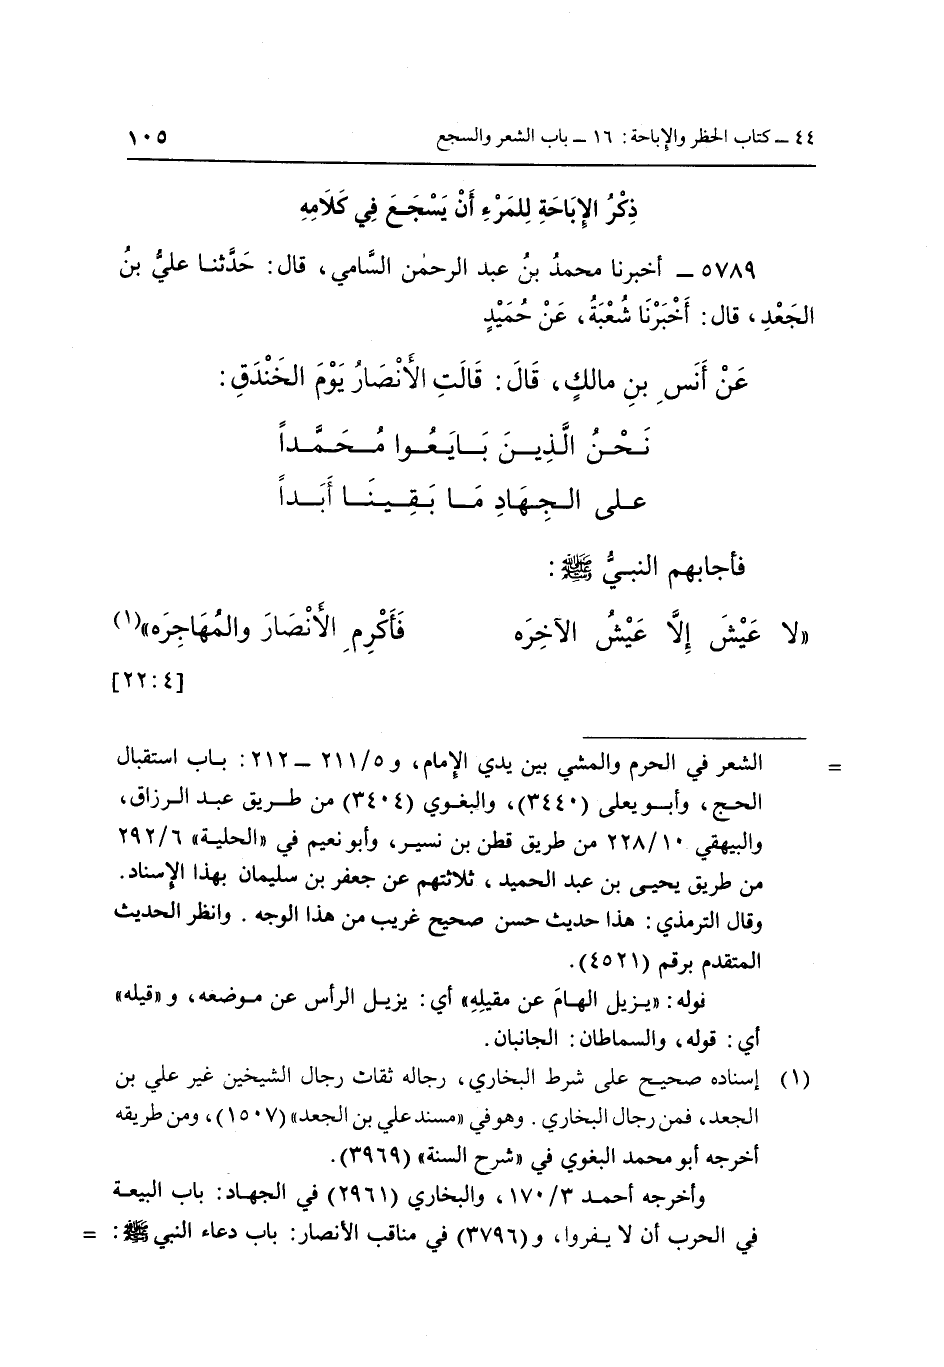 ٤٤ ــ كتاب الحظر والإباحة: ١٦ ــ باب الشعر والسجع ١٠٥
ذِكْرُ الإِبَاحَةِ لِلمَرْءِ أَنْ يَسْجَعَ فِي كَلَامِهِ
٥٧٨٩ ــ أخبرنا محمدُ بنُ عبد الرحمٰن السَّامي، قال: حَدَّثنا عليُّ بنُ
الجَعْدِ، قال: أَخْبَرْنَا شُعْبَةُ، عَنْ حُمَيْدٍ
عَنْ أَنَسِ بنِ مالكٍ، قَالَ: قَالَتِ الأَنْصَارُ يَوْمَ الخَنْدَقِ:
نَحْنُ الَّذِينَ بَايَعُوا مُحَمَّداً
على الجِهَادِ مَا بَقِينَا أَبَداً
فأجابهم النبيُّ ﷺ:
«لا عَيْشَ إِلَّا عَيْشُ الآخِرَه فَأَكْرِمِ الأَنْصَارَ والمُهَاجِرَه»(١)
[٢٢:٤]
= الشعر في الحرم والمشي بين يدي الإمام، و ٢١١/٥ ــ ٢١٢: باب استقبال
الحج، وأبو يعلى (٣٤٤٠)، والبغوي (٣٤٠٤) من طريق عبد الرزاق،
والبيهقي ٢٢٨/١٠ من طريق قطن بن نسير، وأبو نعيم في «الحلية» ٢٩٢/٦
من طريق يحيى بن عبد الحميد، ثلاثتهم عن جعفر بن سليمان بهذا الإسناد.
وقال الترمذي: هذا حديث حسن صحيح غريب من هذا الوجه. وانظر الحديث
المتقدم برقم (٤٥٢١).
قوله: «يزيل الهامَ عن مقيلِهِ» أي: يزيل الرأس عن موضعه، و «قيله»
أي: قوله، والسماطان: الجانبان.
(١) إسناده صحيح على شرط البخاري، رجاله ثقات رجال الشيخين غير علي بن
الجعد، فمن رجال البخاري. وهو في «مسند علي بن الجعد» (١٥٠٧)، ومن طريقه
أخرجه أبو محمد البغوي في «شرح السنة» (٣٩٦٩).
وأخرجه أحمد ١٧٠/٣، والبخاري (٢٩٦١) في الجهاد: باب البيعة
في الحرب أن لا يفروا، و (٣٧٩٦) في مناقب الأنصار: باب دعاء النبي ﷺ: =